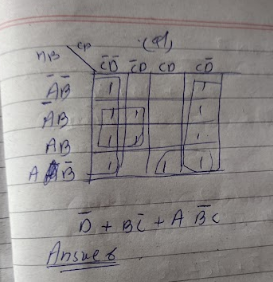 (Q1)
AB CD
C̅D̅ C̅D CD CD̅
A̅B̅ 1 1
A̅B 1 1 1
AB 1 1 1
AB̅ 1 1 1
D̅ + BC̅ + A B̅C
Answer